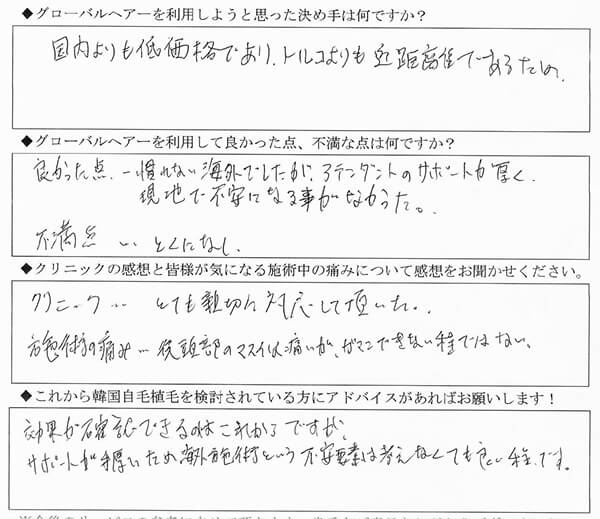 ◆グローバルヘアーを利用しようと思った決め手は何ですか？
国内よりも低価格であり、トルコよりも近距離であるため。
◆グローバルヘアーを利用して良かった点、不満な点は何ですか？
良かった点… 慣れない海外でしたが、アテンダントのサポートが厚く、
現地で不安になる事がなかった。
不満点 … とくになし。
◆クリニックの感想と皆様が気になる施術中の痛みについて感想をお聞かせください。
クリニック… とても親切に対応して頂いた。
施術の痛み… 後頭部のマスイは痛いが、ガマンできない程ではない。
◆これから韓国自毛植毛を検討されている方にアドバイスがあればお願いします！
効果が確認できるのはこれからですが、
サポートが手厚いため海外施術という不安要素は考えなくても良い程です。